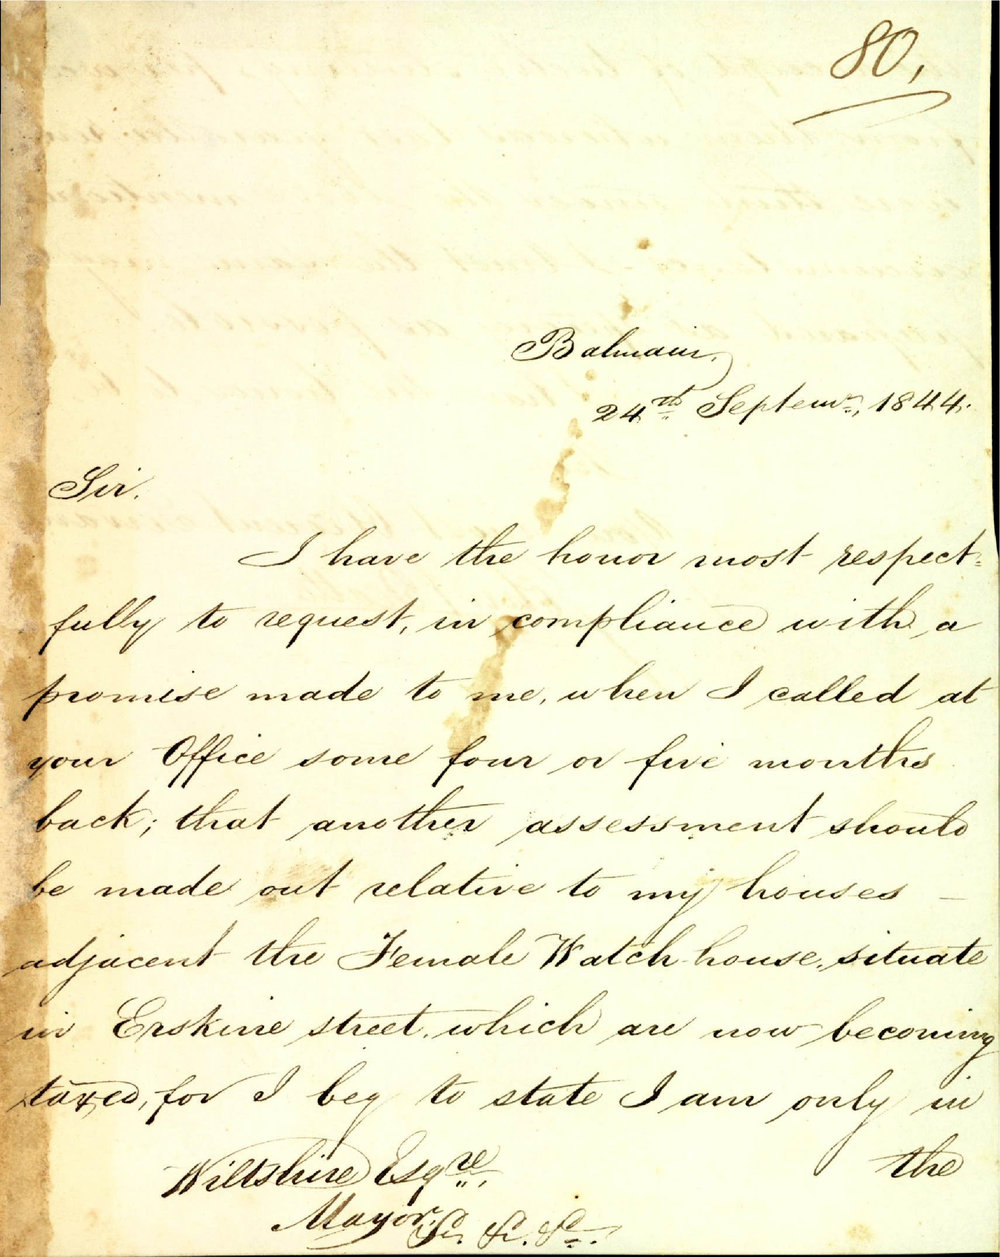 80,
Balmain,
24th Septemr, 1844.
Sir.
I have the honor most respect=
fully to request, in compliance with a
promise made to me, when I called at
your Office some four or five months
back; that another assessment should
be made out relative to my houses –
adjacent the Female Watch-house, situate
in Erskine street, which are now becoming
taxed, for I beg to state I am only in
the
Wiltshire Esqre,
Mayor, &c. &c. &c.